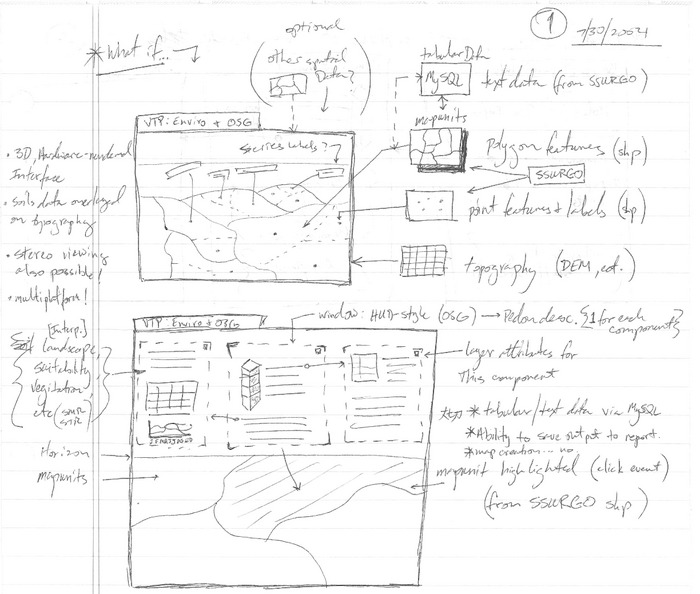 1
7/30/2004
* What if...
optional
other spatial
Data?
tabular Data
MySQL
text data (from SSURGO)
mapunits
VTP: Enviro + OSG
series labels?
Polygon features (shp)
SSURGO
point features + labels (shp)
topography (DEM, ect.)
• 3D, Hardware-rendered
Interface
• soils data overlayed
on topography
• stereo viewing
also possible!
• multiplatform!
VTP: Enviro + OSG
window: HUD-style (OSG) → Pedon desc. {1 for each
component}
[Interp.]
landscape,
suitability,
vegitation,
etc
Horizon
mapunits
layer attributes for
This component
* tabular/text data via MySQL
* Ability to save output to report.
* map creation... no.
mapunit highlighted (click event)
(from SSURGO shp)